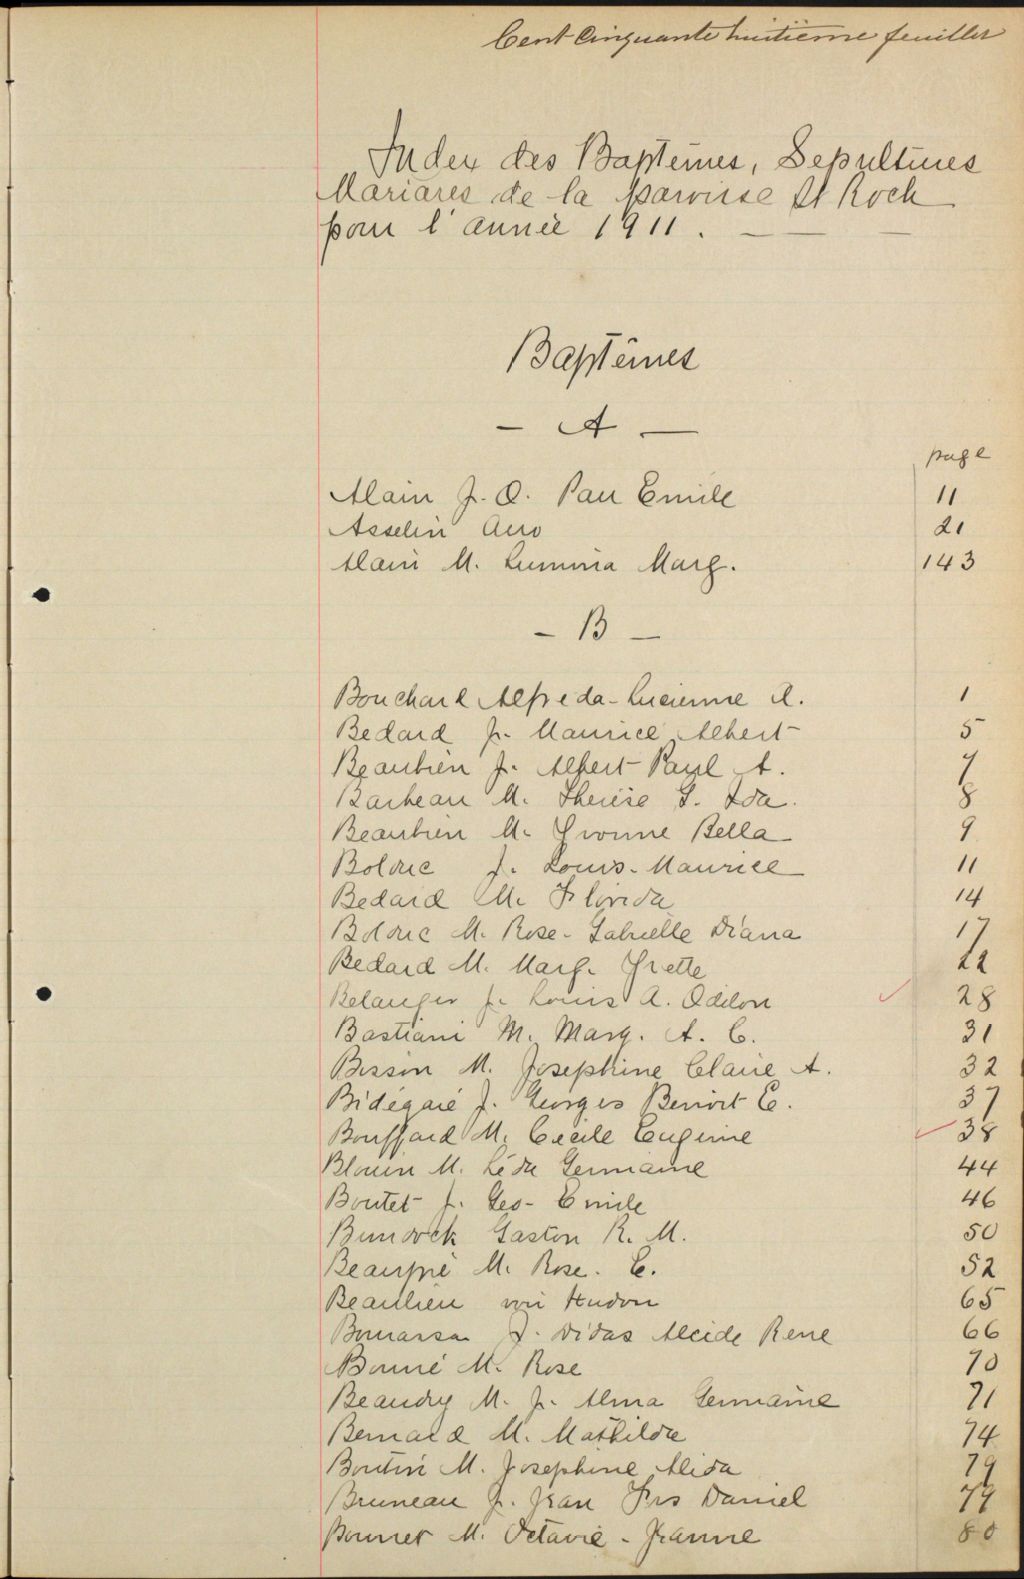 Cent Cinquante huitième feuillet
Index des Baptêmes, Sepultures
Mariares de la paroisse St Roch
pour l'année 1911. — — —
Baptêmes
- A -
page
Alain J. O. Pau Emile 11
Asselin 21
Alain M. Lumina Marg. 143
- B -
Bouchard Alfreda-Lucienne A. 1
Bedard J. Maurice Albert 5
Beaubien J. Albert Paul A. 7
Barbeau M. Therèse G. Ida. 8
Beaubien M. Yvonne Bella 9
Bolduc J. Louis-Maurice 11
Bedard M. Florida 14
Bolduc M. Rose-Gabrielle Diana 17
Bedard M. Marg. Yvette 22
Belanger J. Louis A. Odilon 28
Bastiani M. Marg. A. C. 31
Bisson M. Josephine Claire A. 32
Bidégaré J. Georges Benoit E. 37
Bouffard M. Cecile Eugenie 38
Blouin M. Léda Germaine 44
Boutet J. Geo-Emile 46
Bundock Gaston R. M. 50
Beaupré M. Rose. E. 52
Beaulieu voir Hudon 65
Bourassa J. Didas Alcide Rene 66
Bourré M. Rose 70
Beaudry M. J. Alma Germaine 71
Bernard M. Mathilda 74
Boutin M. Josephine Alida 79
Bruneau J. Jean Frs Daniel 79
Bonner M. Octavie-Jeanne 80